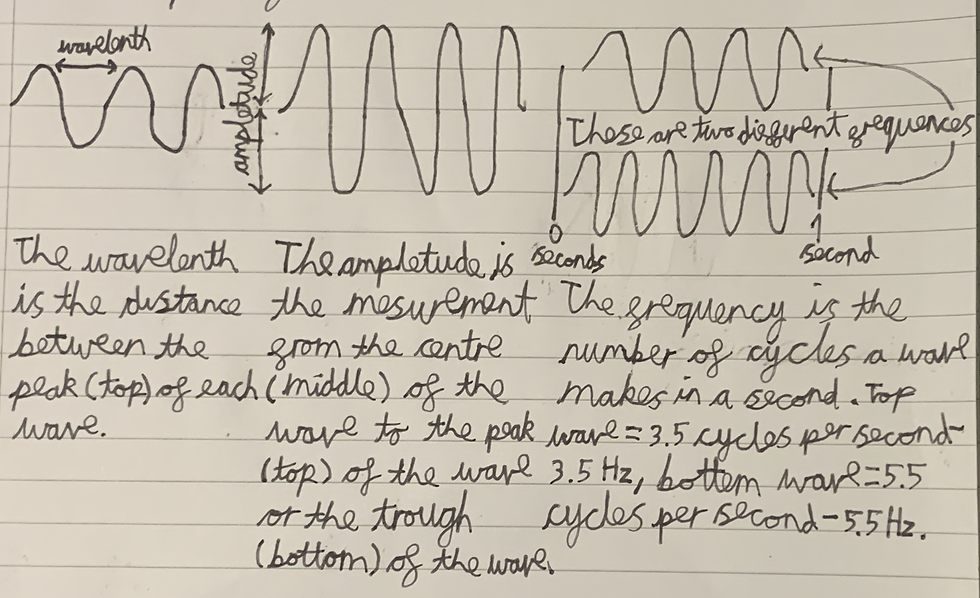 wavelenth
ampletude
These are two different frequences
0
seconds
1
second
The wavelenth
is the distance
between the
peak (top) of each
wave.
The ampletude is
the mesurement
from the centre
(middle) of the
wave to the peak
(top) of the wave
or the trough
(bottom) of the wave.
The frequency is the
number of cycles a wave
makes in a second. Top
wave = 3.5 cycles per second-
3.5 Hz, bottom wave = 5.5
cycles per second - 5.5 Hz.